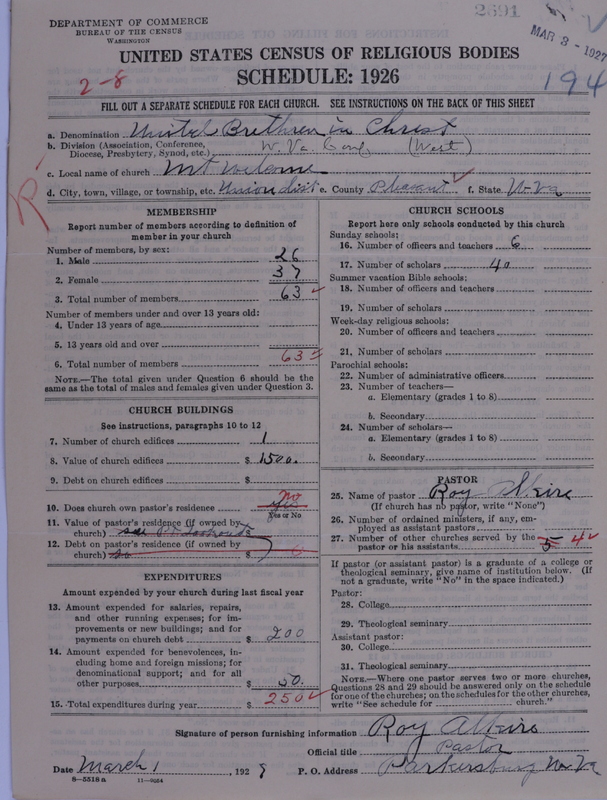 DEPARTMENT OF COMMERCE
BUREAU OF THE CENSUS
WASHINGTON
2691
MAR 3 - 1927
UNITED STATES CENSUS OF RELIGIOUS BODIES
SCHEDULE: 1926
2-8
194
FILL OUT A SEPARATE SCHEDULE FOR EACH CHURCH. SEE INSTRUCTIONS ON THE BACK OF THIS SHEET
a. Denomination United Brethren in Christ
b. Division (Association, Conference, Diocese, Presbytery, Synod, etc.) W. Va. Conf (West)
c. Local name of church Mt Welcome
d. City, town, village, or township, etc. Union dist e. County Pleasant f. State W-Va
R
MEMBERSHIP
Report number of members according to definition of
member in your church
Number of members, by sex:
1. Male 26
2. Female 37
3. Total number of members 63
Number of members under and over 13 years old:
4. Under 13 years of age
5. 13 years old and over
6. Total number of members 63
NOTE.—The total given under Question 6 should be the
same as the total of males and females given under Question 3.
CHURCH BUILDINGS
See instructions, paragraphs 10 to 12
7. Number of church edifices 1
8. Value of church edifices $ 1500.
9. Debt on church edifices $
10. Does church own pastor's residence no
Yes or No
11. Value of pastor's residence (if owned by
church) $
12. Debt on pastor's residence (if owned by
church) $
EXPENDITURES
Amount expended by your church during last fiscal year
13. Amount expended for salaries, repairs,
and other running expenses; for im-
provements or new buildings; and for
payments on church debt $ 200
14. Amount expended for benevolences, in-
cluding home and foreign missions; for
denominational support; and for all
other purposes $ 50.
15. Total expenditures during year $ 250
CHURCH SCHOOLS
Report here only schools conducted by this church
Sunday schools:
16. Number of officers and teachers 6
17. Number of scholars 40
Summer vacation Bible schools:
18. Number of officers and teachers
19. Number of scholars
Week-day religious schools:
20. Number of officers and teachers
21. Number of scholars
Parochial schools:
22. Number of administrative officers
23. Number of teachers—
a. Elementary (grades 1 to 8)
b. Secondary
24. Number of scholars—
a. Elementary (grades 1 to 8)
b. Secondary
PASTOR
25. Name of pastor Roy
(If church has no pastor, write "None")
26. Number of ordained ministers, if any, em-
ployed as assistant pastors
27. Number of other churches served by the
pastor or his assistants 5 4
If pastor (or assistant pastor) is a graduate of a college or
theological seminary, give name of institution below. (If
not a graduate, write "No" in the space indicated.)
Pastor:
28. College
29. Theological seminary
Assistant pastor:
30. College
31. Theological seminary
NOTE.—Where one pastor serves two or more churches,
Questions 28 and 29 should be answered only on the schedule
for one of the churches; on the schedules for the other churches,
write "See schedule for church."
Signature of person furnishing information Roy
Official title Pastor
Date March 1 192 P. O. Address Parkersburg W-Va
8-5518a 11-9064